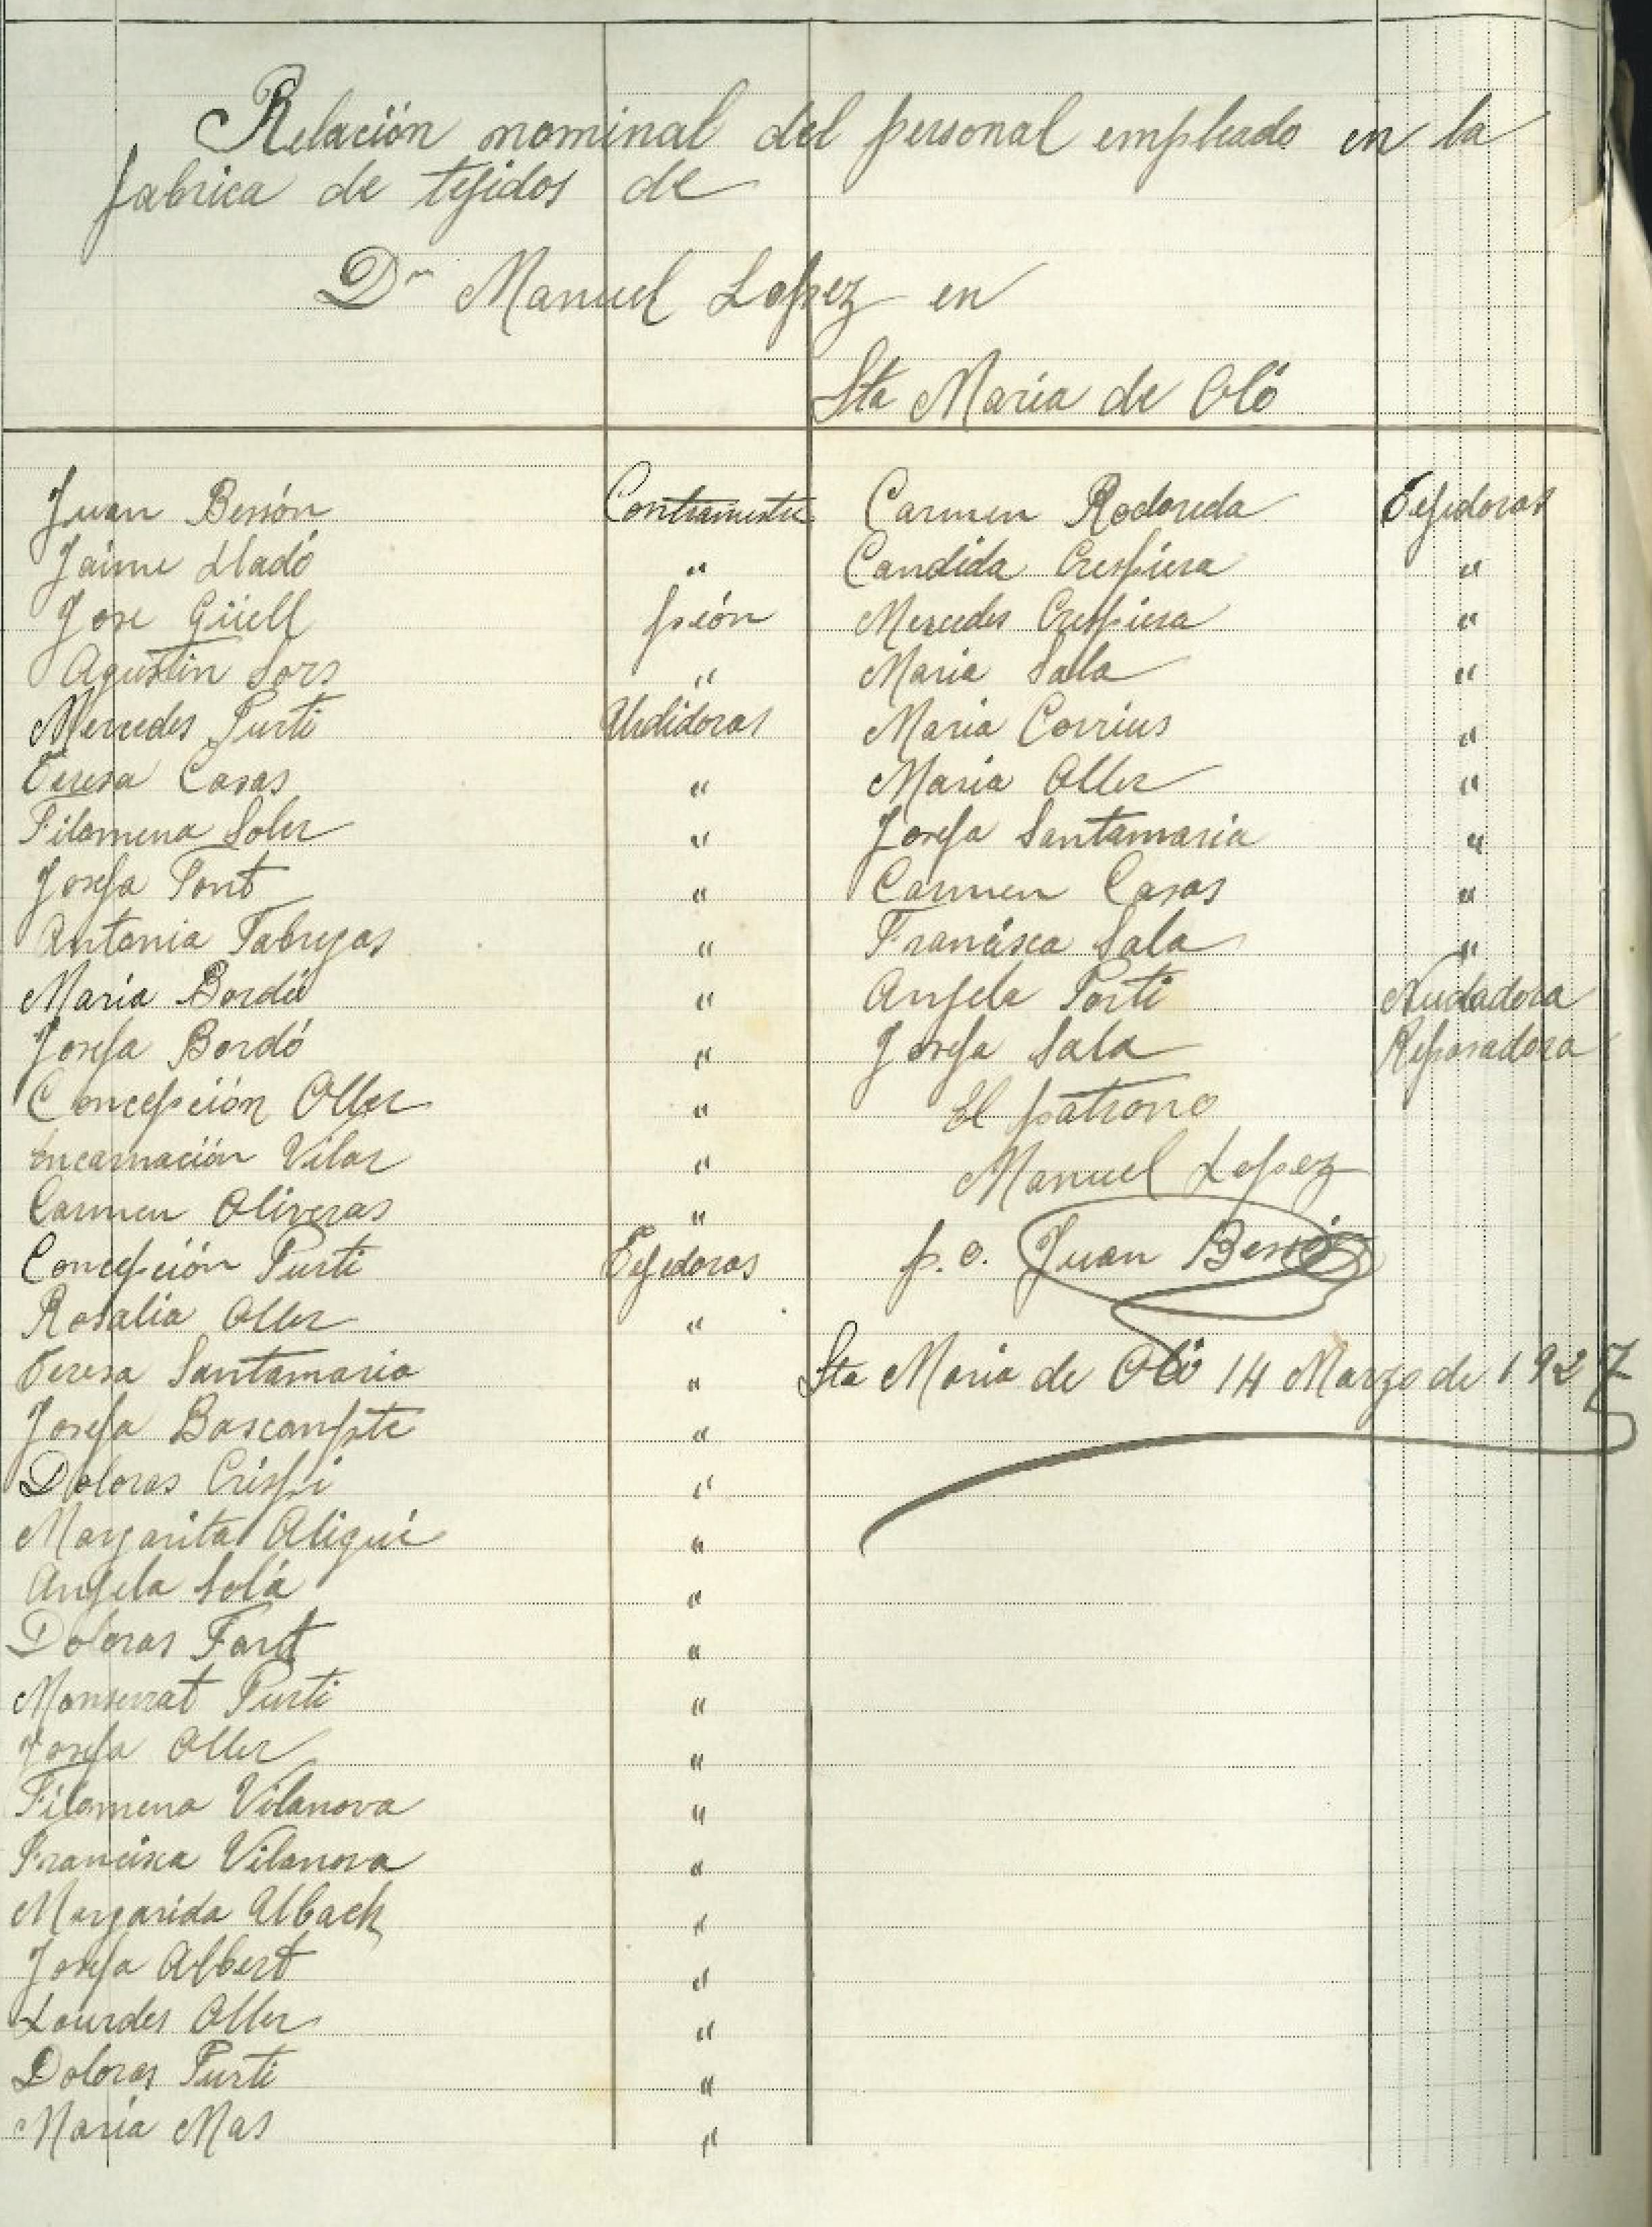 Relación nominal del personal empleado en la
fabrica de tejidos de
Dn Manuel Lopez en
Sta Maria de Oló
Juan Besión Contramestre
Jaime Lladó "
Jose Güell peón
Agustin Sors "
Mercedes Purti Urdidoras
Teresa Casas "
Filomena Soler "
Josefa Font "
Antonia Fabregas "
Maria Bordó "
Josefa Bordó "
Concepción Oller "
Encarnación Vilar "
Carmen Oliveras "
Concepción Purti Tejedoras
Rosalia Oller "
Teresa Santamaria "
Josefa Bascompte "
Doloras Crispi "
Margarita Aligué "
Angela Solá "
Doloras Font "
Monserrat Purti "
Josefa Oller "
Filomena Vilanova "
Francisca Vilanova "
Margarida Ubach "
Josefa Albert "
Lourdes Oller "
Doloras Purti "
Maria Mas "
Carmen Rodoreda Tejedoras
Candida Crespiera "
Mercedes Crespiera "
Maria Sala "
Maria Corrius "
Maria Oller "
Josefa Santamaria "
Carmen Casas "
Francisca Sala "
Angela Porti Nudadora
Josefa Sala Reposadora
El patrono
Manuel Lopez
p.o. Juan
Sta Maria de Oló 14 Marzo de 1927